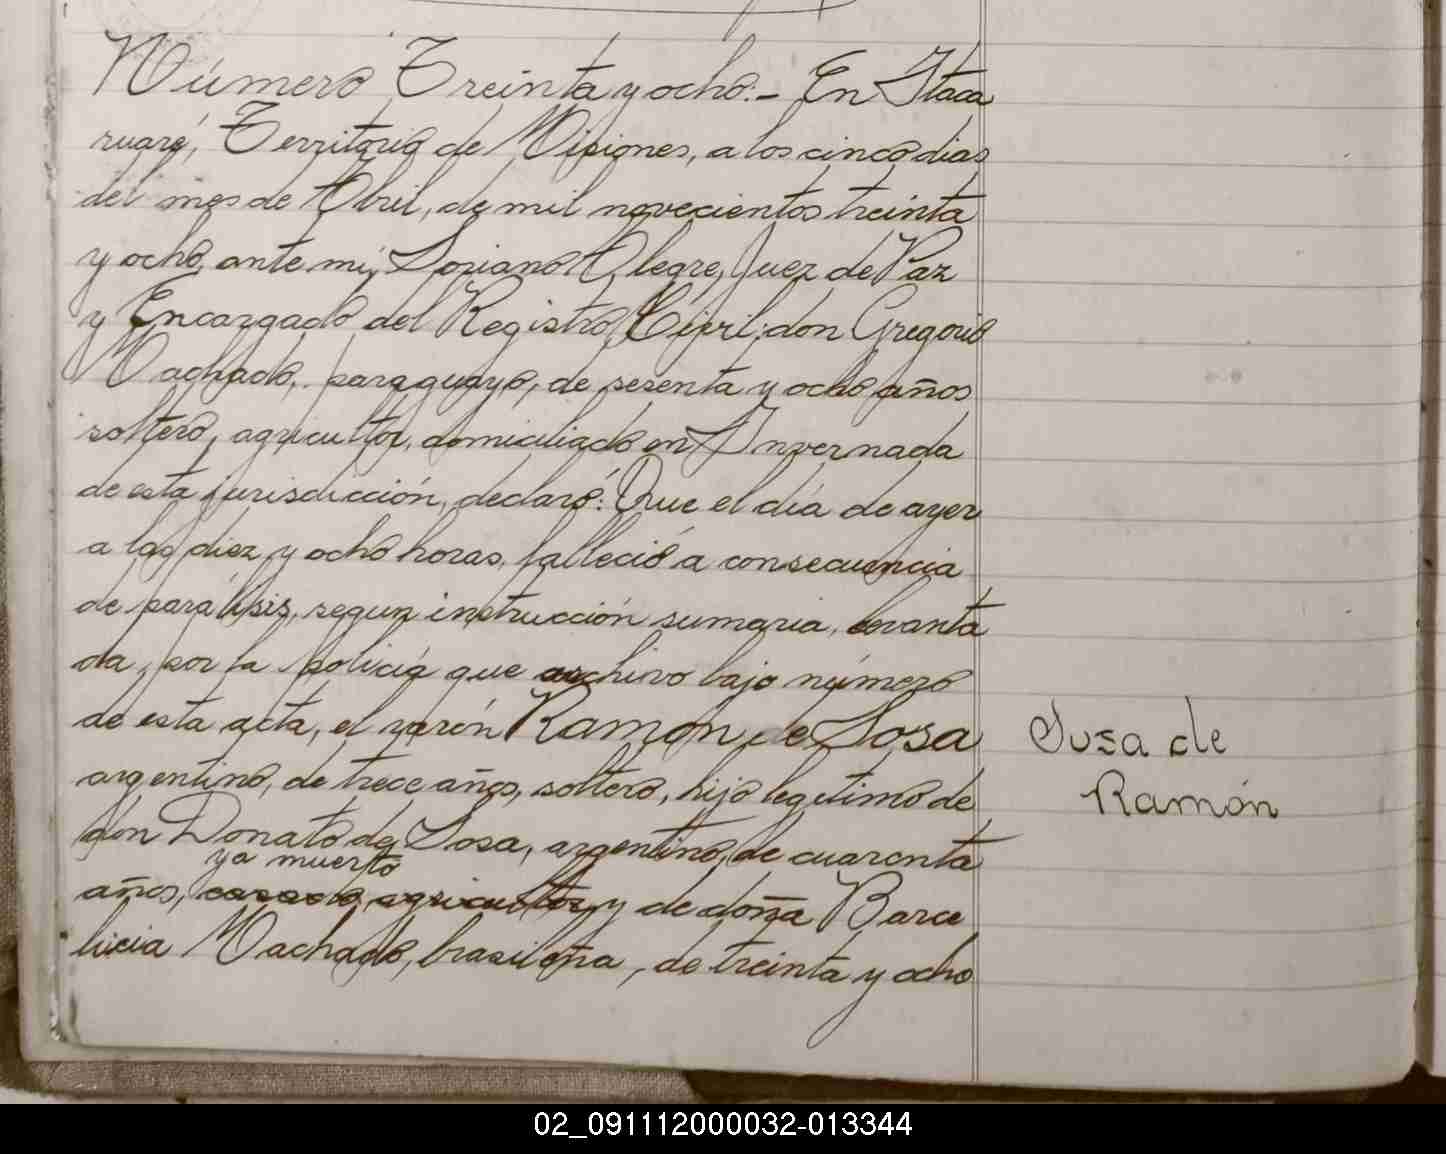 Número Treinta y ocho.- En Itaca
ruaré, Territorio de Misiones, a los cinco dias
del mes de Abril, de mil novecientos treinta
y ocho, ante mí, Soriano Alegre, Juez de Paz
y Encargado del Registro Civil; don Gregorio
Machado, paraguayo, de sesenta y ocho años
soltero, agricultor, domiciliado en Invernada
de esta jurisdicción, declaró: Que el día de ayer
a las diez y ocho horas, falleció a consecuencia
de parálisis, segun instrucción sumaria, levanta
da, por la policía que archivo bajo número
de esta acta, el varón Ramon de Sosa
argentino, de trece años, soltero, hijo legitimo de
don Donato de Sosa, argentino, de cuarenta
ya muerto
años, casado, agricultor, y de doña Barce
licia Machado, brasileña, de treinta y ocho
Susa de
Ramón
02_091112000032-013344